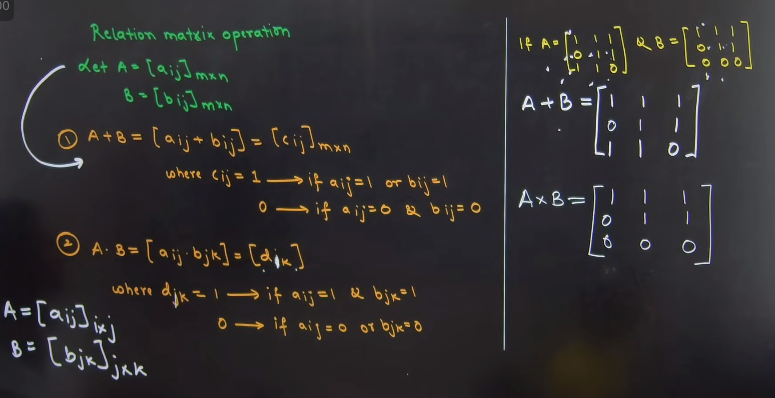 00
Relation matrix operation
Let A = [aij] mxn
B = [bij] mxn
① A+B = [aij + bij] = [cij] mxn
where cij = 1 → if aij=1 or bij=1
0 → if aij=0 & bij=0
② A·B = [aij·bjk] = [dik]
where djk = 1 → if aij=1 & bjk=1
0 → if aij=0 or bjk=0
A = [aij] ixj
B = [bjk] jxk
If A = [1 1 1 & B = [1 1 1
0 1 1 0 1 1
1 1 0] 0 0 0]
A+B = [1 1 1
0 1 1
1 1 0]
A×B = [1 1 1
0 1 1
0 0 0]